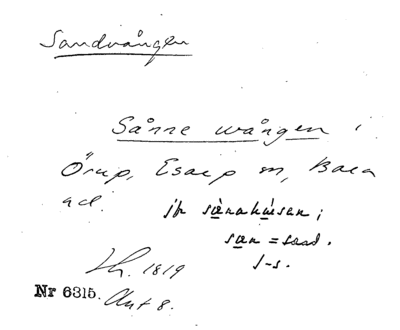 Sandvången
Sånne wången i
Örup, Esarp m, Bara
hd.
jfr sånahúsen;
sən = sand.
J-s.
Lh. 1819
Nr 6315. Akt 8.